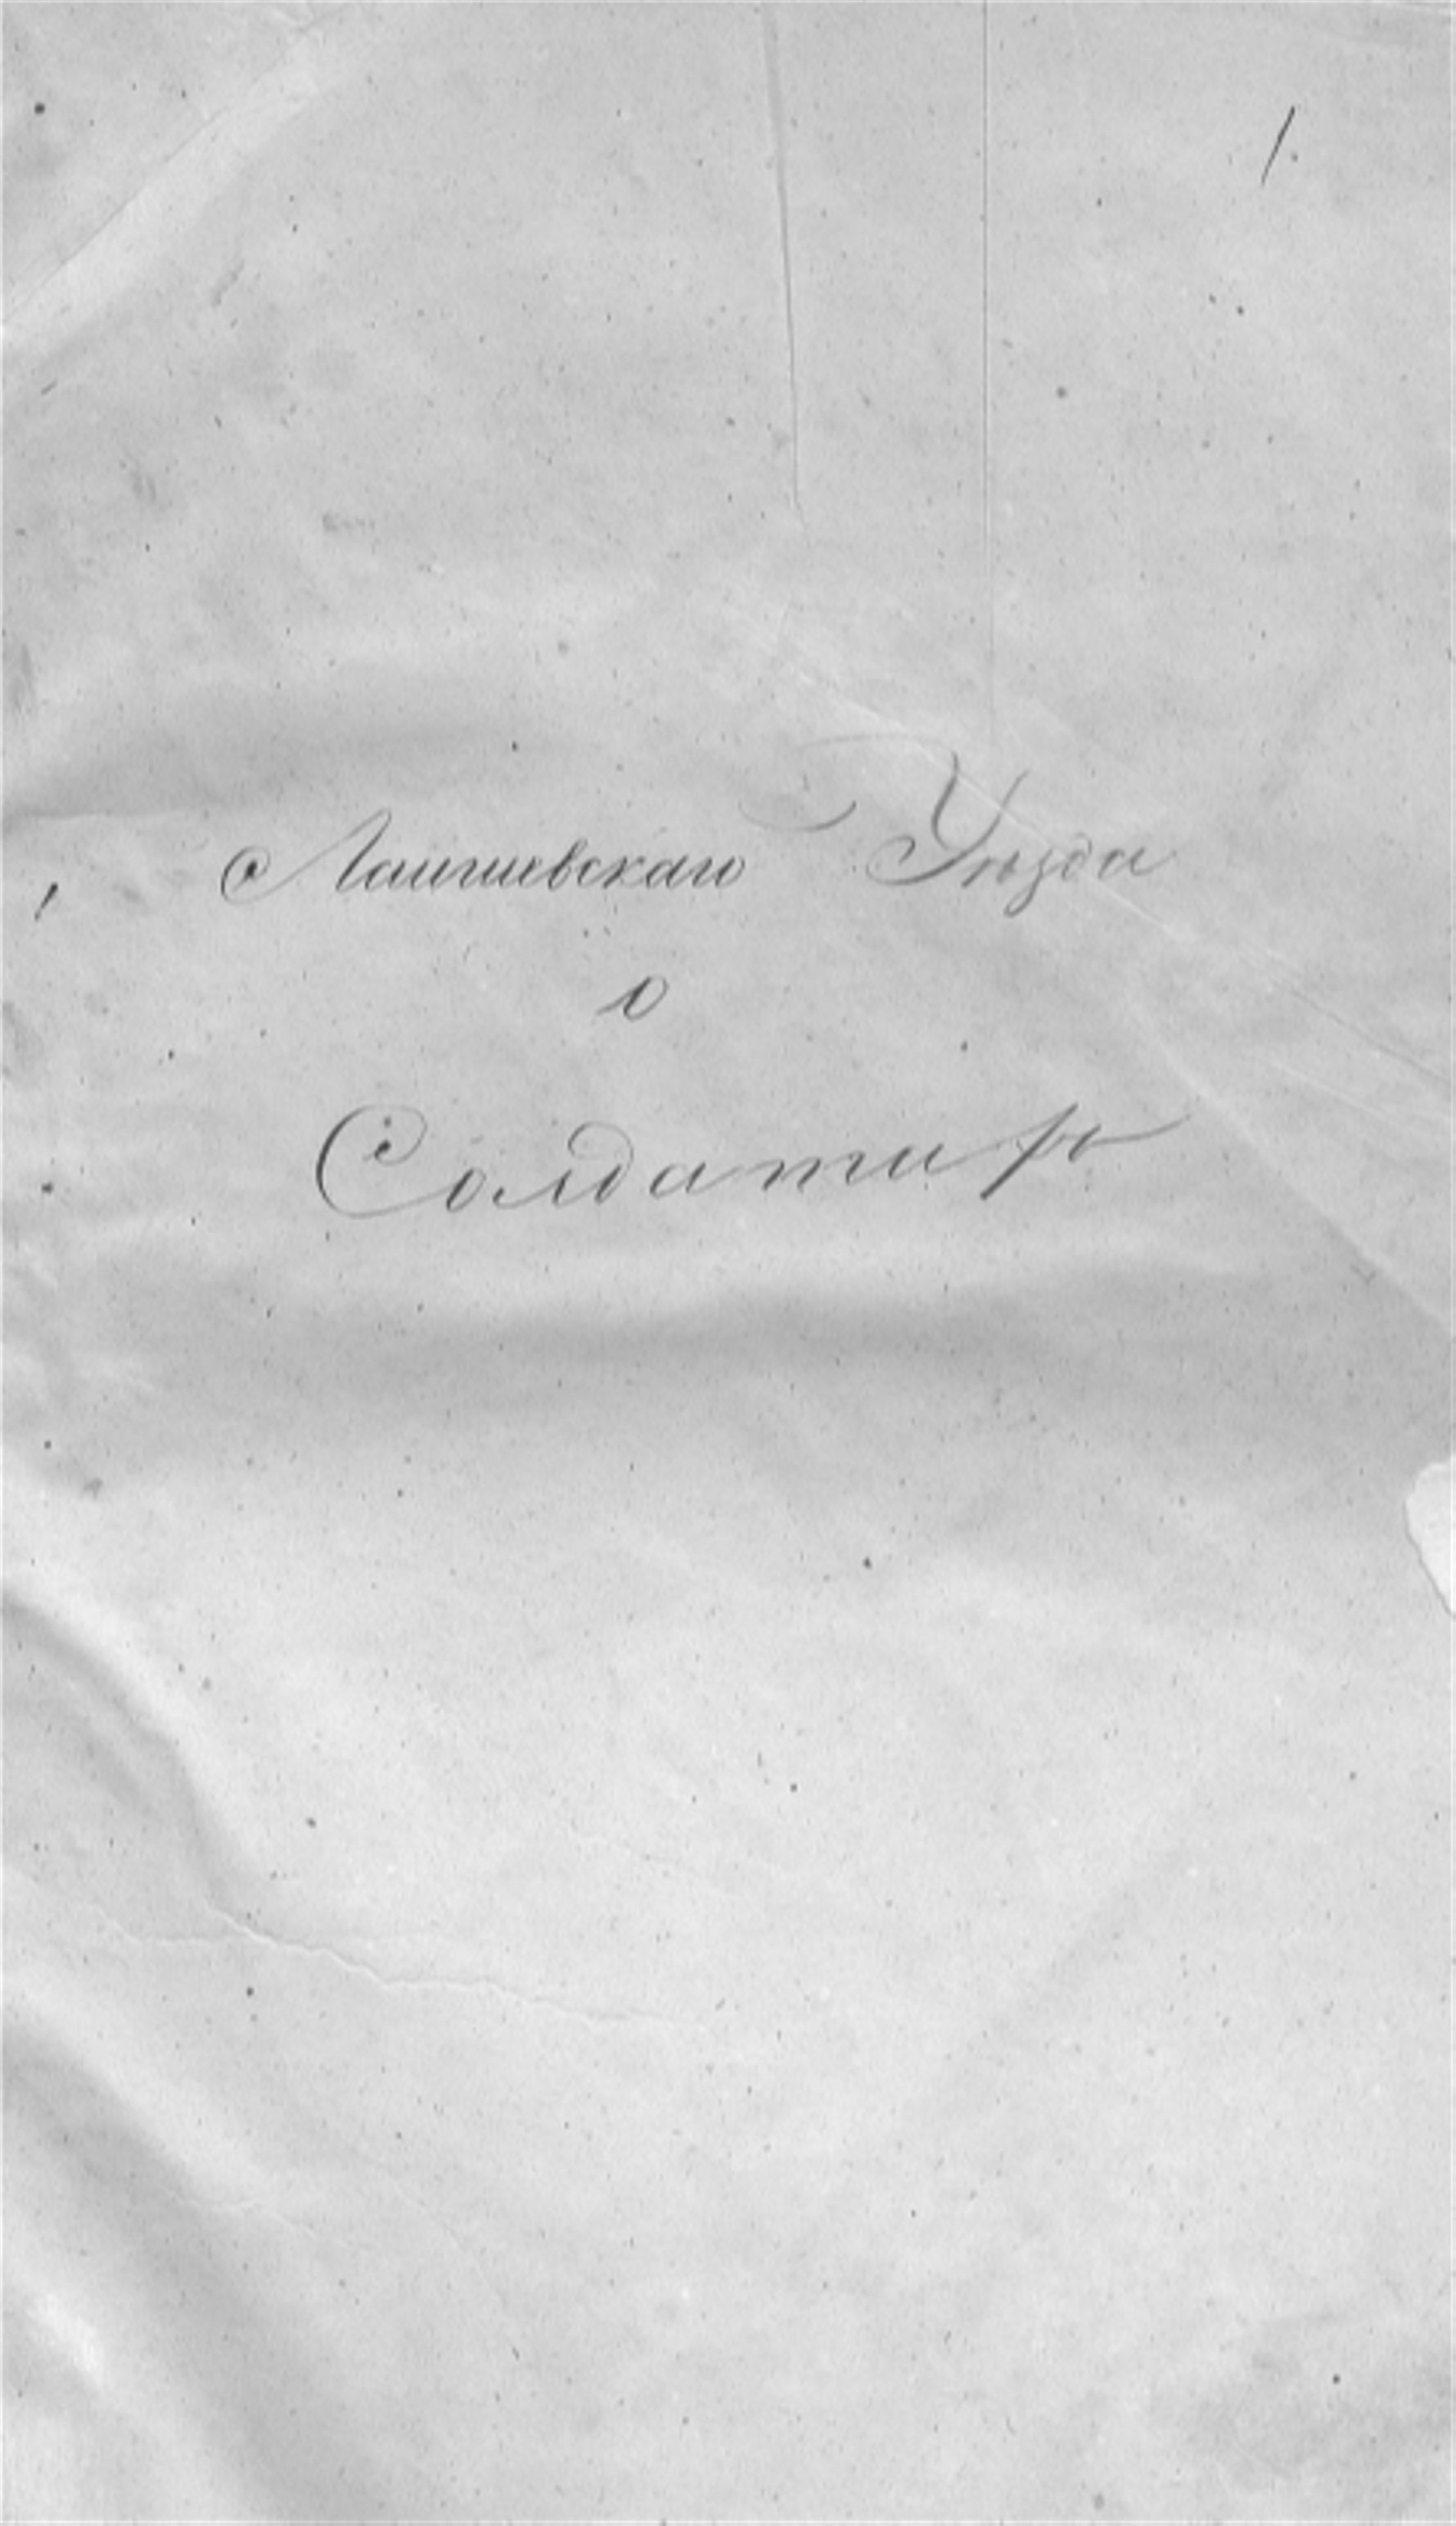 1.
Лаишевскаго Уѣзда
о
Солдатахъ